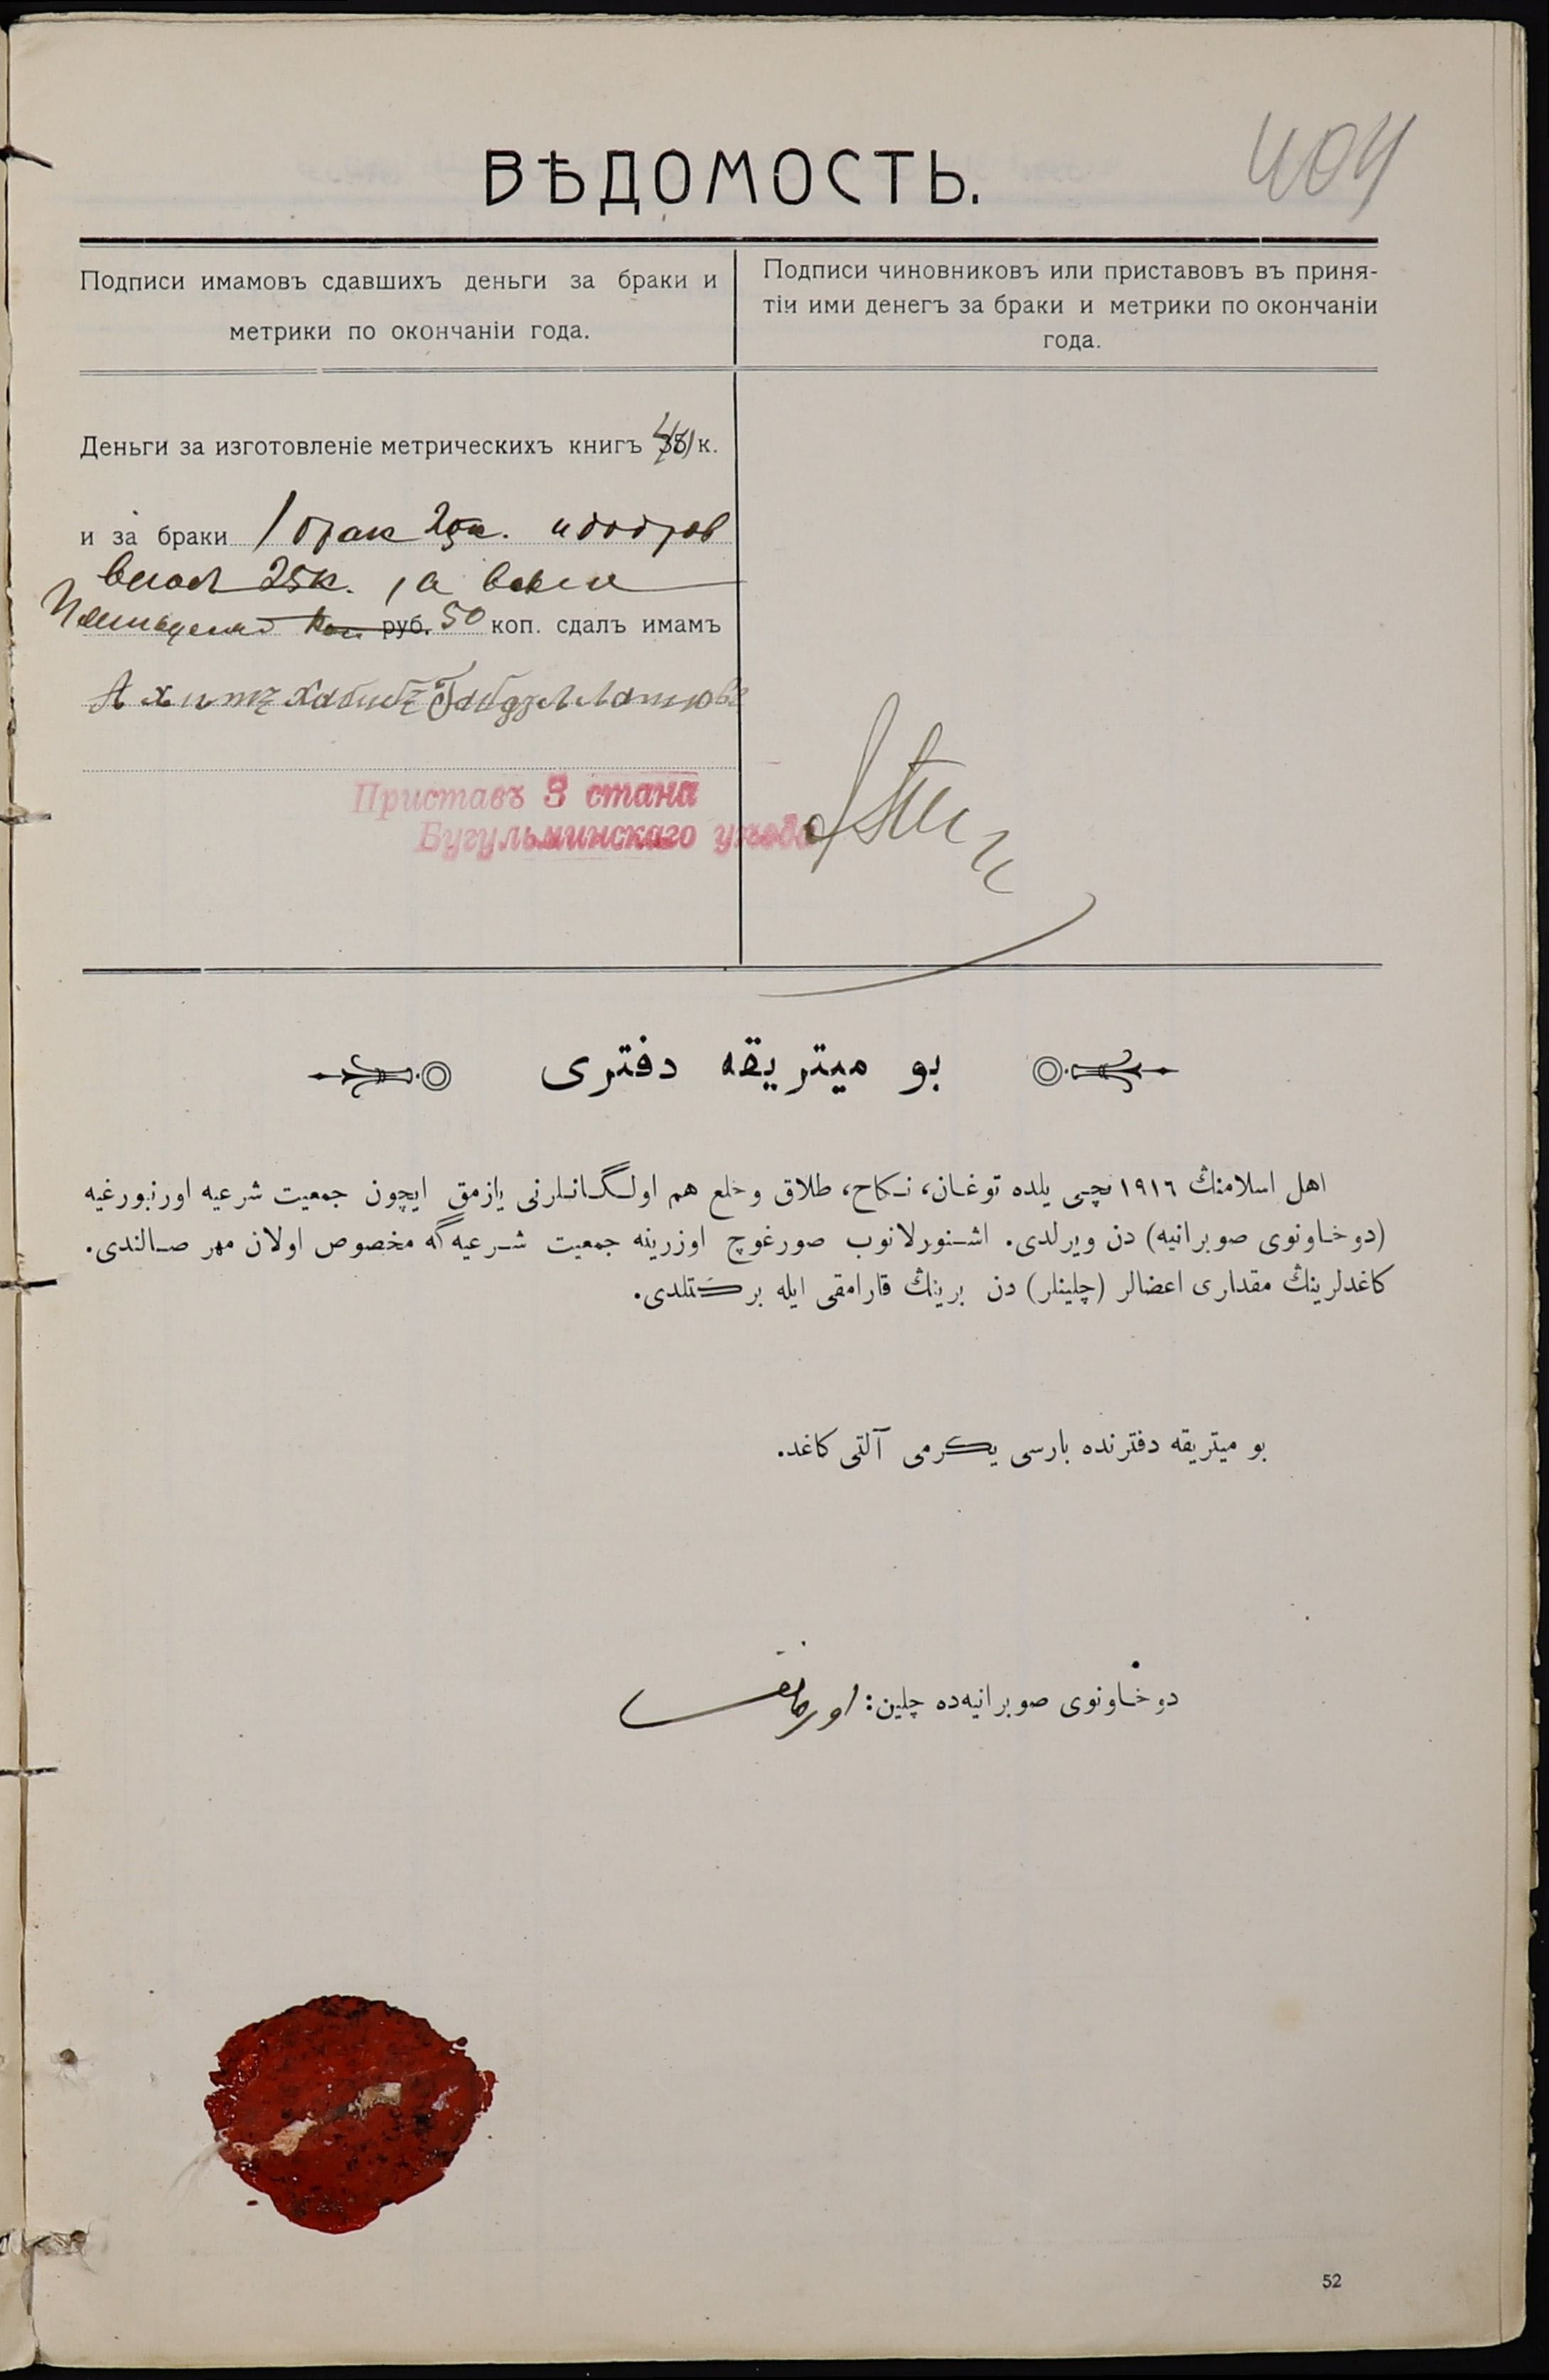 404
ВѢДОМОСТЬ.
Подписи имамовъ сдавшихъ деньги за браки и
метрики по окончаніи года.
Подписи чиновниковъ или приставовъ въ приня-
тіи ими денегъ за браки и метрики по окончаніи
года.
Деньги за изготовленіе метрическихъ книгъ к.
и за браки 1 брак 25к.
25к. , а всего
руб. 50 коп. сдалъ имамъ
Хабибъ
Приставъ 3 стана
Бугульминскаго уѣзда
بو ميتريقه دفترى
اهل اسلامنڭ ١٩١٦ نچى يلده توغان، نكاح، طلاق وخلع هم اولگانلرنى يازمق ايچون جمعيت شرعيه اورنبورغيه
(دوخاونوى صوبرانيه) دن ويرلدى. اشنورلانوب صورغوچ اوزرينه جمعيت شرعيه‌گه مخصوص اولان مهر صالندى.
كاغدلرينڭ مقدارى اعضالر (چلينلر) دن برينڭ قارامقى ايله بركتلدى.
بو ميتريقه دفترنده بارسى يكرمى آلتى كاغد.
دوخاونوى صوبرانيه‌ده چلين:
52